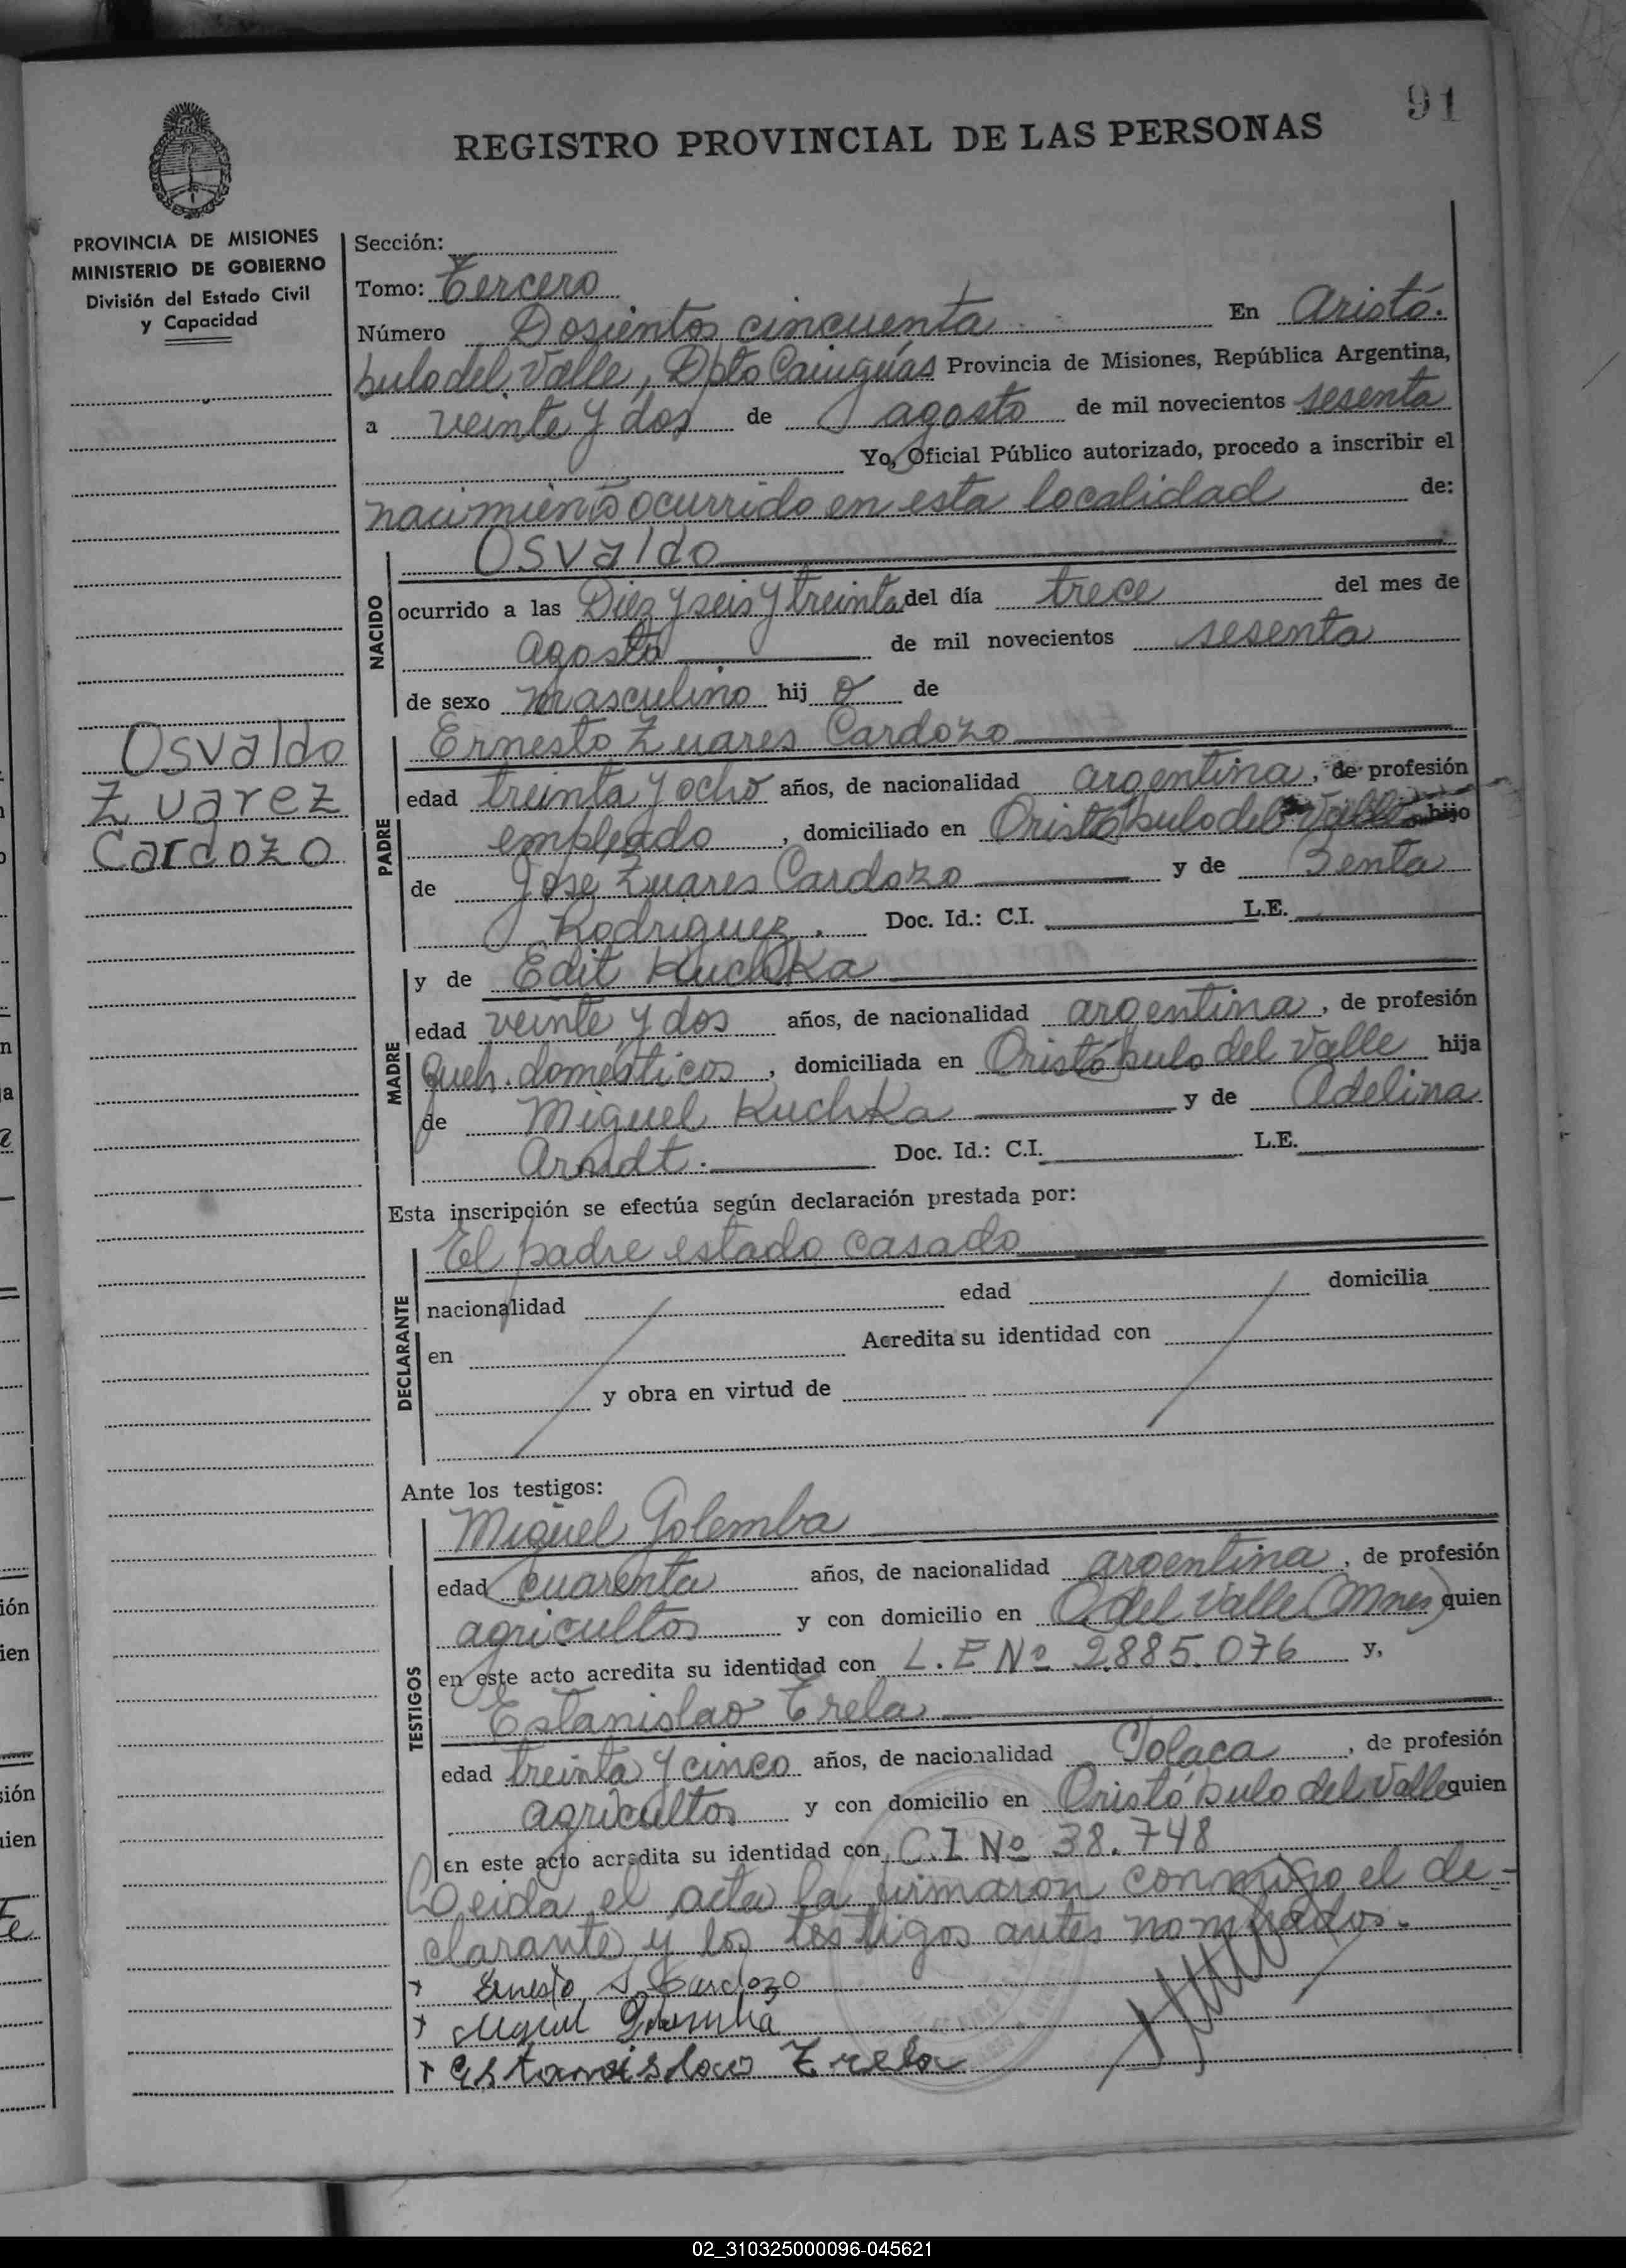 91
REGISTRO PROVINCIAL DE LAS PERSONAS
PROVINCIA DE MISIONES
MINISTERIO DE GOBIERNO
División del Estado Civil
y Capacidad
Osvaldo
Zuarez
Cardozo
Sección:
Tomo: Tercero
Número Dosientos cincuenta En Aristó-
bulo del Valle, Dpto Cainguás Provincia de Misiones, República Argentina,
a veinte y dos de agosto de mil novecientos sesenta
Yo, Oficial Público autorizado, procedo a inscribir el
nacimiento ocurrido en esta localidad de:
NACIDO
Osvaldo
ocurrido a las Diez y seis y treinta del día trece del mes de
agosto de mil novecientos sesenta
de sexo masculino hij o de
PADRE
Ernesto Zuares Cardozo
edad treinta y ocho años, de nacionalidad argentina, de profesión
empleado, domiciliado en Aristóbulo del Valle hijo
de Jose Zuares Cardozo y de Benta
Rodriguez. Doc. Id.: C.I. L.E.
MADRE
y de Edit Kuchka
edad veinte y dos años, de nacionalidad argentina, de profesión
queh. domésticos, domiciliada en Aristóbulo del Valle hija
de Miguel Kuchka y de Adelina
Arndt. Doc. Id.: C.I. L.E.
Esta inscripción se efectúa según declaración prestada por:
DECLARANTE
El padre estado casado
nacionalidad edad domicilia
en Acredita su identidad con
y obra en virtud de
Ante los testigos:
TESTIGOS
Miguel Golemba
edad cuarenta años, de nacionalidad argentina, de profesión
agricultor y con domicilio en A. del Valle (Mnes) quien
en este acto acredita su identidad con L.E Nº 2.885.076 y,
Estanislao Trela
edad treinta y cinco años, de nacionalidad Polaca, de profesión
agricultor y con domicilio en Aristóbulo del Valle quien
en este acto acredita su identidad con C.I. Nº 38.748
Leida el acta la firmaron conmigo el de-
clarante y los testigos antes nombrados.-
Ernesto S. Cardozo
Miguel Golemba
Estanislao Trela
02_310325000096-045621